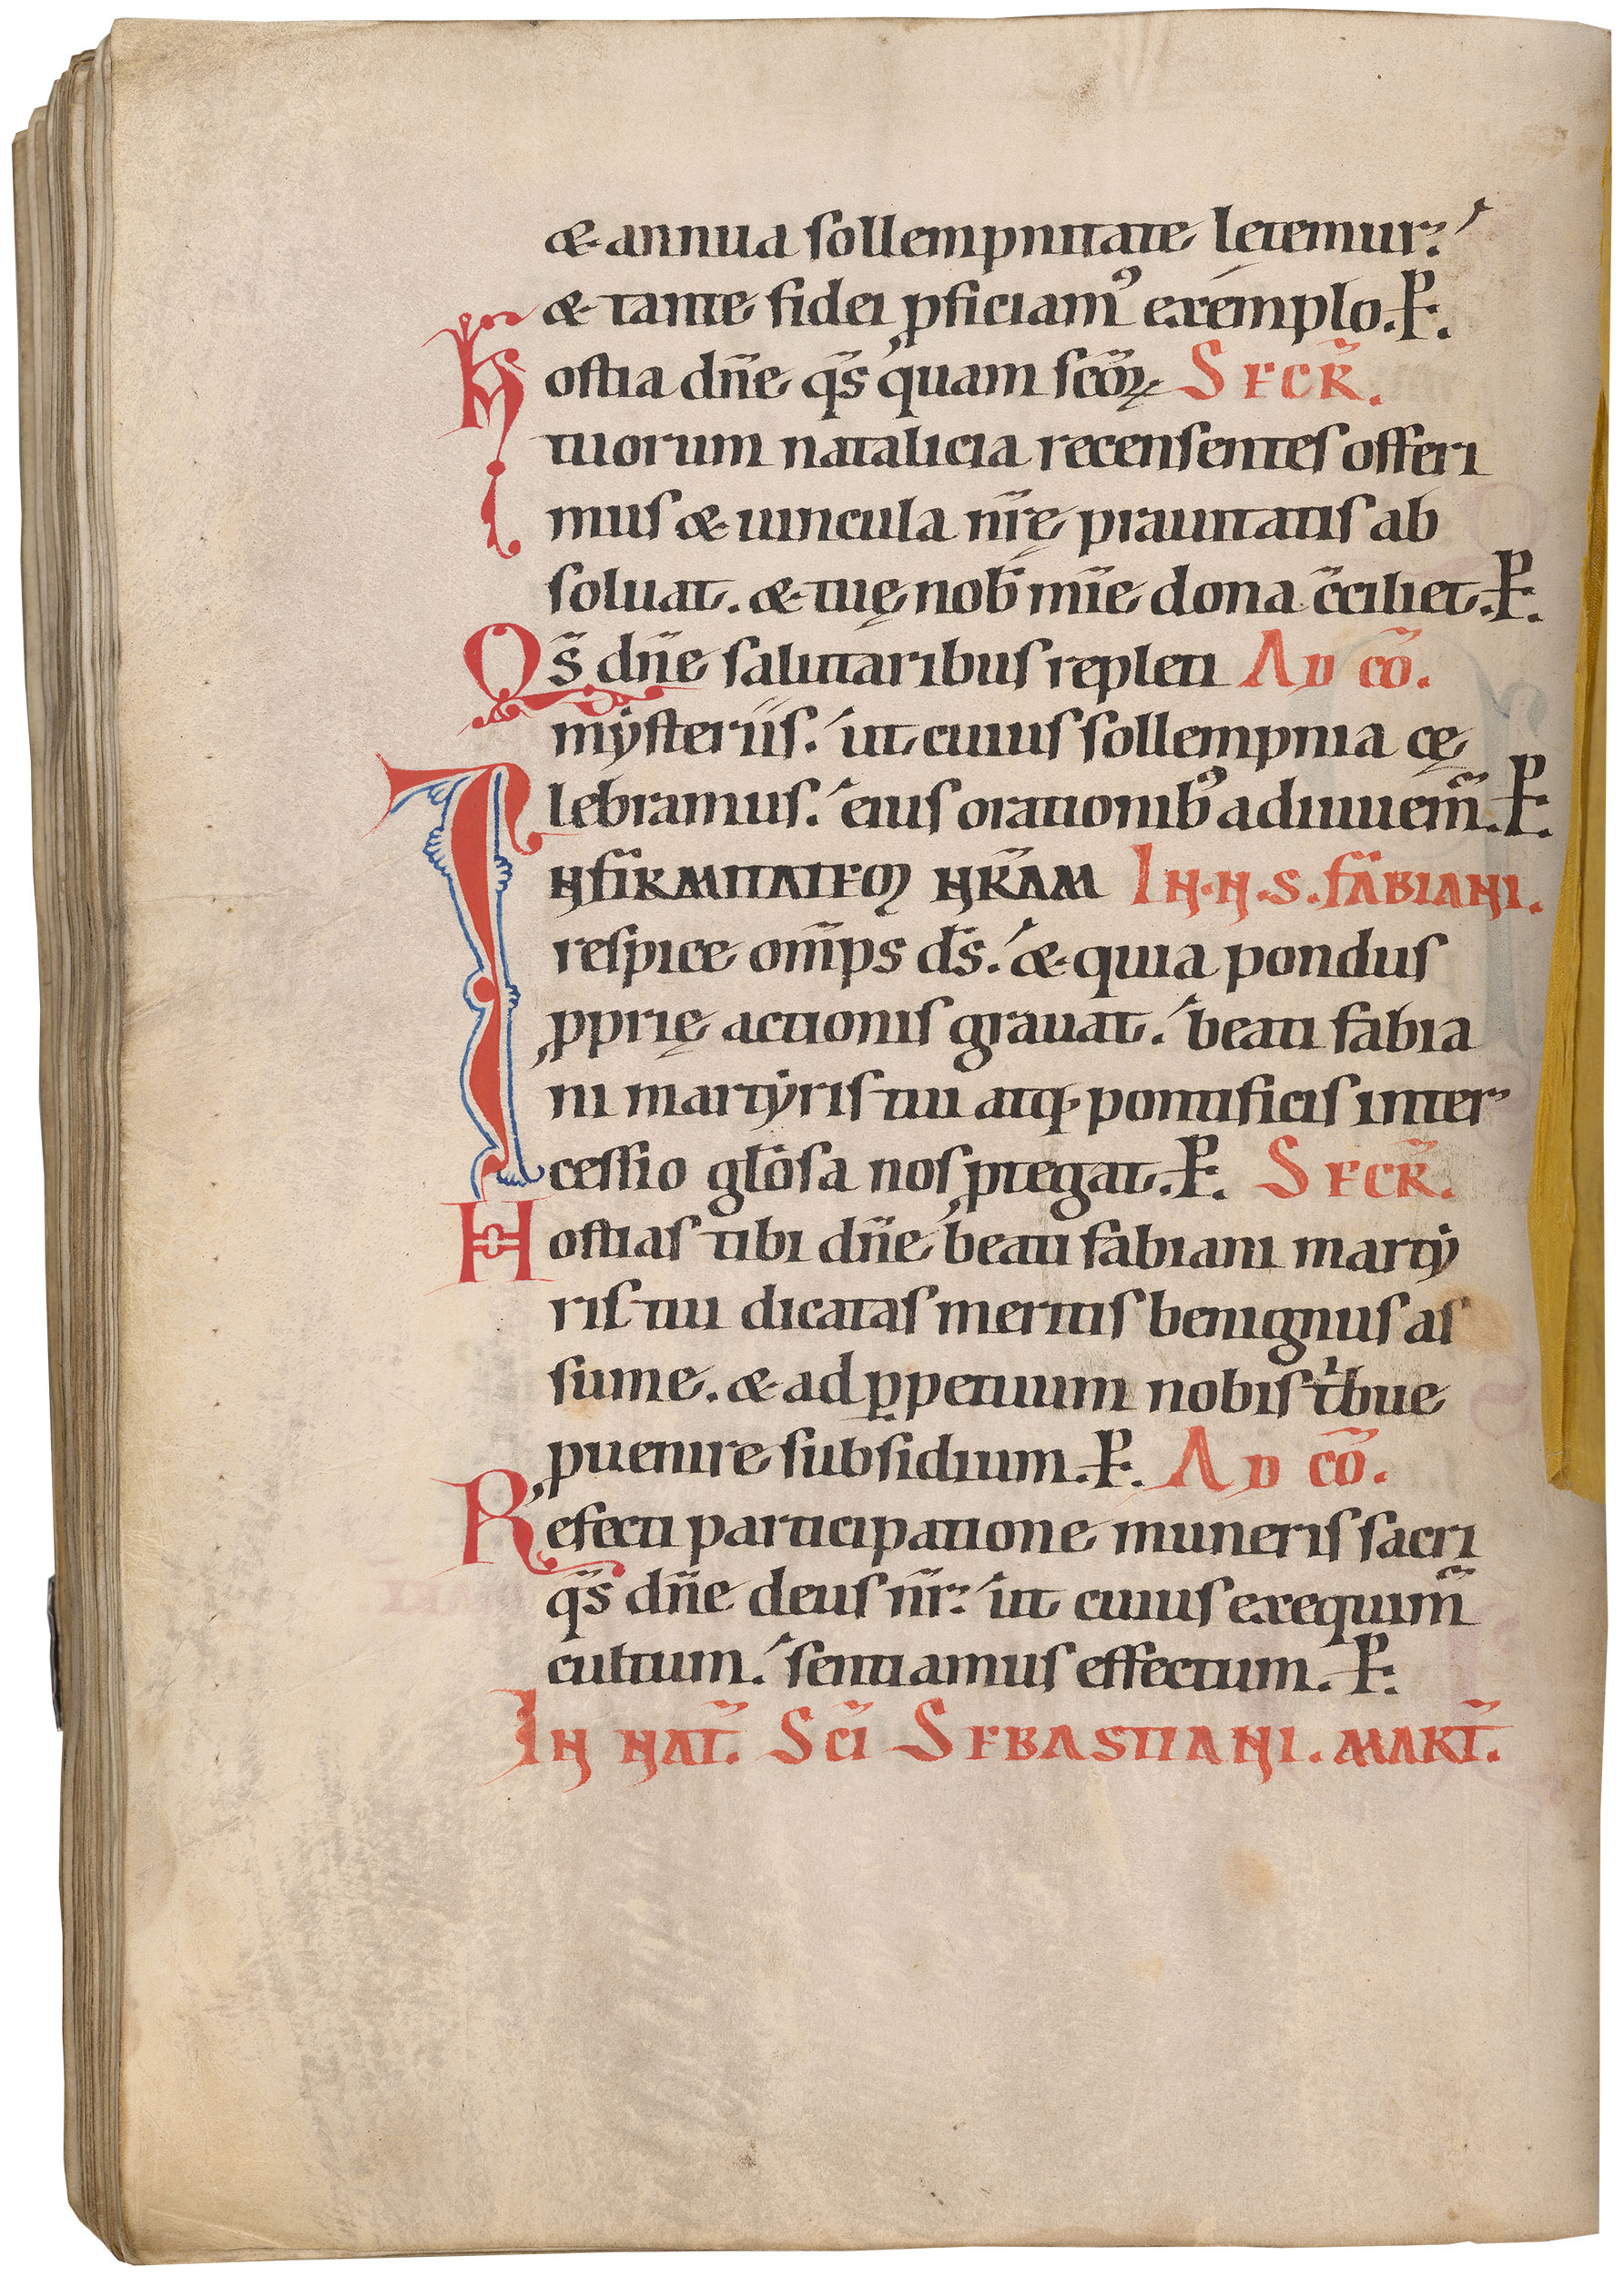 & annua sollempnitate lętemur.
& tante fidei ꝓficiamꝰ exemplo. P.
Hostia dn̄e q̄s quam sc̄oꝝ SECR̄.
tuorum natalicia recensentes offeri
mus & uincula nr̄ę prauitatis ab
soluat. & tuę nob̄ mīe dona c̄ciliet. P.
Qs̄ dn̄e salutaribus repleti AD CŌ.
mẏsteriis. ut cuius sollempnia cę
lebramus. eius orationibꝰ adiuuem̄. P.
INFIRMITATEM NR̄AM IN.N.S.FABIANI.
respice om̄ps ds̄. & quia pondus
ꝓprię actionis grauat. beati fabia
ni martẏris tui atq; pontificis inter
cessio gl̄osa nos ꝓtegat. P. SECR̄.
Hostias tibi dn̄e beati fabiani martẏ
ris tui dicatas meritis benignus as
sume. & ad ꝑpetuum nobis tͥbue
ꝓuenire subsidium. P. AD CŌ.
Refecti participatione muneris sacri
q̄s dn̄e deus nr̄. ut cuius exequim̄
cultum. sentiamus effectum. P.
IN NAT̄. SC̄I SEBASTIANI. MART̄.